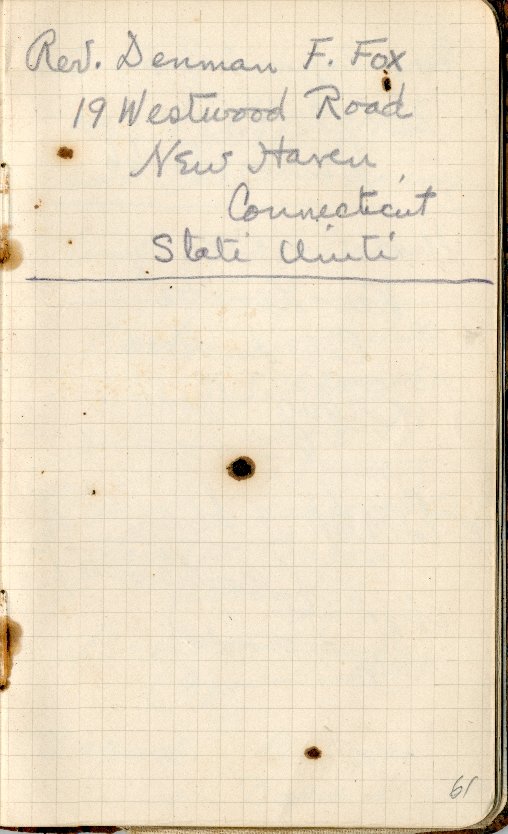 Rev. Denman F. Fox
19 Westwood Road
New Haven
Connecticut
61